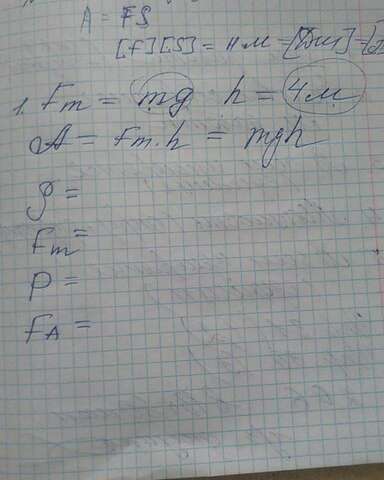 A = FS
[f][S] = Н м = [Дж] =
1. Fт = mg h = 4м
A = Fт. h = mgh
ρ =
Fт =
P =
FA =